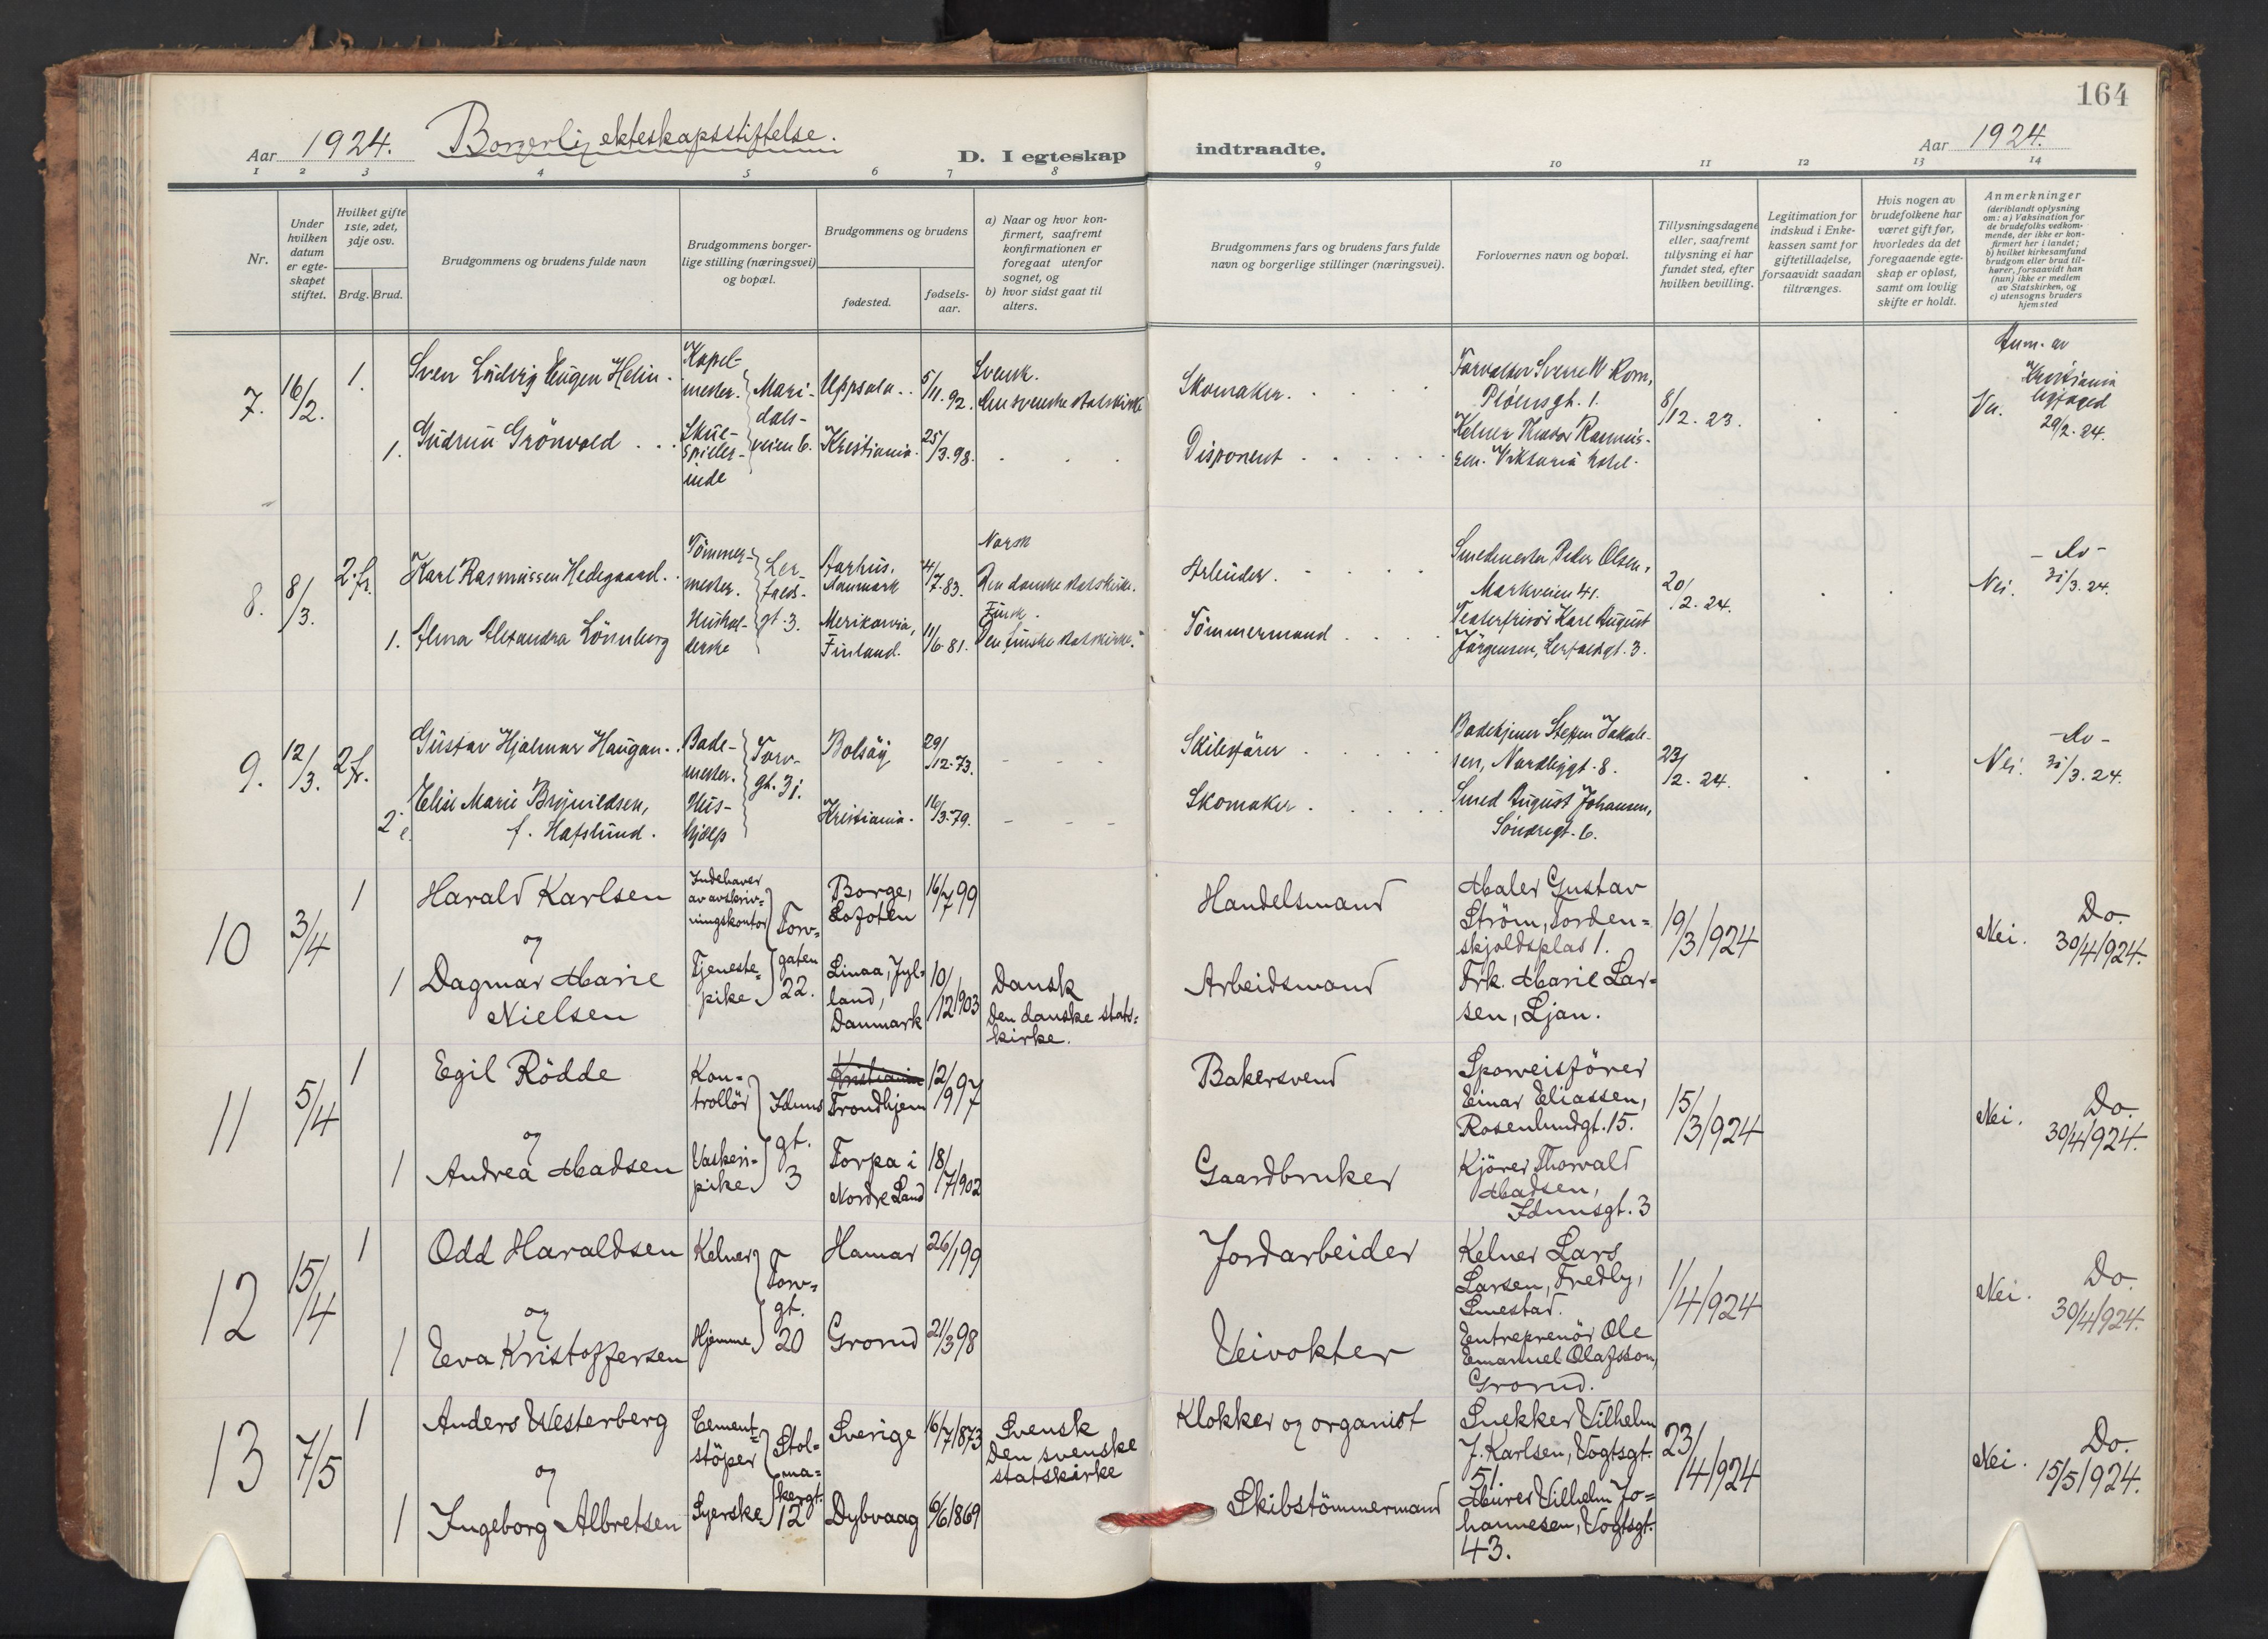 164
Aar 1924. Borgerlig ekteskapsstiftelse.
D. I egteskap indtraadte.
Aar 1924.
1 2 3 4 5 6 7 8 9 10 11 12 13 14
Nr.
Under hvilken datum er egteskapet stiftet.
Hvilket gifte 1ste, 2det, 3dje osv.
Brdg. Brud.
Brudgommens og brudens fulde navn
Brudgommens borgerlige stilling (næringsvei) og bopæl.
Brudgommens og brudens
fødested.
fødselsaar.
a) Naar og hvor konfirmert, saafremt konfirmationen er foregaat utenfor sognet, og
b) hvor sidst gaat til alters.
Brudgommens fars og brudens fars fulde navn og borgerlige stillinger (næringsvei).
Forlovernes navn og bopæl.
Tillysningsdagene eller, saafremt tillysning ei har fundet sted, efter hvilken bevilling.
Legitimation for indskud i Enkekassen samt for giftetilladelse, forsaavidt saadan tiltrænges.
Hvis nogen av brudefolkene har været gift før, hvorledes da det foregaaende egteskap er opløst, samt om lovlig skifte er holdt.
Anmerkninger
(deriblandt oplysning om: a) Vaksination for de brudefolks vedkommende, der ikke er konfirmert her i landet; b) hvilket kirkesamfund brudgom eller brud tilhører, forsaavidt han (hun) ikke er medlem av Statskirken, og c) utensogns bruders hjemsted
7. 16/2. 1. Sven Ludvig Eugen Helin. Kapelmester. Maridalsveien 6. Uppsala. 5/11. 92. Svensk. Den svenske statskirke
Skomaker. Forvalter Sverre W Rom, Pløensgt. 1. 8/12. 23. Anm. av Kristiania byfoged 29/2. 24.
1. Gudrun Grönvold Skuespillerinde Kristiania. 25/3. 98.
Disponent Kelner Rasmussen. Viktoria hotel.
8. 8/3. 2. fr. Karl Rasmussen Hedegaard. Tömmermester. Lerfaldsgt. 3. Aarhus, Danmark 4/7. 83. Norsk Den danske statskirke.
Arbeider. Smedmester Peder Olsen, Markveien 41. 20/2. 24. Nei. - do - 31/3. 24.
1. Alma Alexandra Lönnberg Husholderske Merikarvia, Finland. 11/6. 81. Finsk. Den finske statskirke.
Tömmermand Teaterfrisör Karl August Jörgensen, Lerfaldsgt. 3.
9. 12/3. 2. fr. Gustav Hjalmar Haugan. Bademester. Torvgt. 31. Bolsöy 29/12. 73.
Skibsförer Badebetjener Steffen Jakobsen, Nordbygt. 8. 23/2. 24. Nei. - do - 31/3. 24.
2 e. Elise Marie Brynildsen, f. Hafslund. Hushjælp Kristiania. 16/3. 79.
Skomaker. Smed August Johansen, Söndregt. 6.
10 3/4 1 Harald Karlsen Indehaver av avskrivningskontor Torvgaten 22. Borge, Lofoten 16/7 99
Handelsmand Maler Gustav Ström, Tordenskjoldsplas 1. 19/3 1924 Nei. Do. 30/4 1924.
og
1 Dagmar Marie Nielsen Tjenestepike Linaa, Jylland, Danmark 10/12 1903 Dansk Den danske statskirke.
Arbeidsmand Frk. Marie Larsen, Ljan.
11 5/4 1 Egil Rödde Kontrollör Idunsgt. 3 Kristiania Trondhjem 12/9 97
Bakersvend Sporveisförer Einar Eliassen, Rosenlundgt. 15. 15/3 1924 Nei. Do. 30/4 1924.
og
1 Andrea Madsen Vaskeripike Torpa i Nordre Land 18/7 1902
Gaardbruker Kjörer Thorvald Madsen, Idunsgt. 3
12 15/4 1 Odd Haraldsen Kelner Torvgt. 20 Hamar 26/1 99
Jordarbeider Kelner Lars Larsen, Fredly, Smestad. 1/4 1924 Nei. Do. 30/4 1924.
og
1 Eva Kristoffersen Hjemme Grorud 21/3 98
Veivokter Entreprenör Ole Emanuel Olafsson, Grorud.
13 7/5 1 Anders Westerberg Cementstöper Stolmakergt. 12 Sverige 16/7 1873 Svensk Den svenske statskirke
Klokker og organist Snekker Vilhelm J. Karlsen, Vogtsgt. 51. 23/4 1924 Nei. Do. 15/5 1924.
og
1 Ingeborg Albretsen Syerske Dybvaag 6/6 1869
Skibstömmermand Murer Vilhelm Johannesen, Vogtsgt. 43.